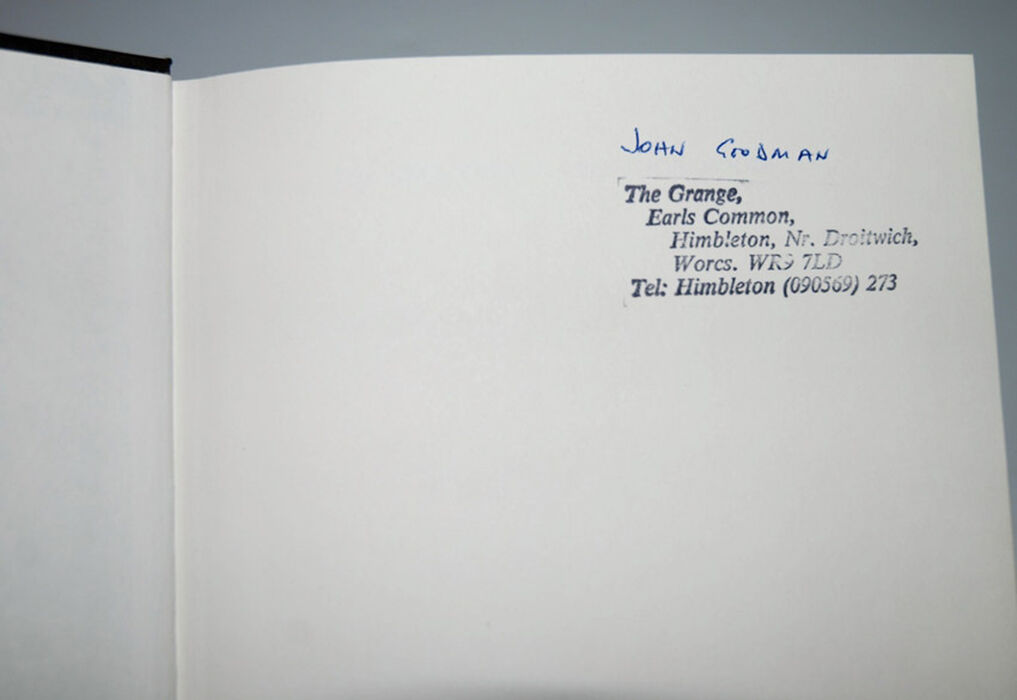 JOHN GOODMAN
The Grange,
Earls Common,
Himbleton, Nr. Droitwich,
Worcs. WR9 7LD
Tel: Himbleton (090569) 273